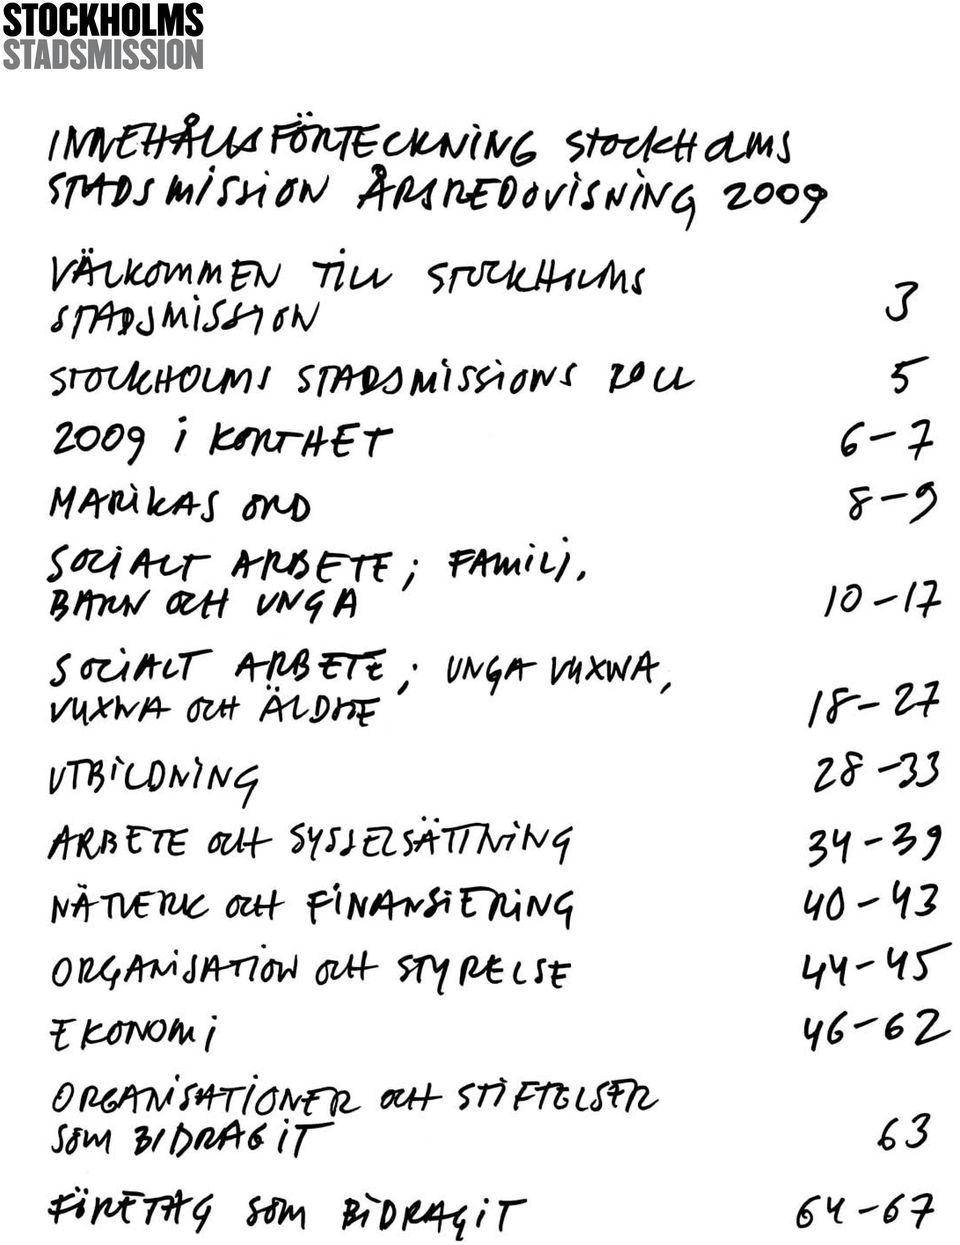 STOCKHOLMS
STADSMISSION
INNEHÅLLSFÖRTECKNING STOCKHOLMS
STADSMISSION ÅRSREDOVISNING 2009
VÄLKOMMEN TILL STOCKHOLMS
STADSMISSION 3
STOCKHOLMS STADSMISSIONS ROLL 5
2009 I KORTHET 6-7
MARIKAS ORD 8-9
SOCIALT ARBETE; FAMILJ,
BARN OCH UNGA 10-17
SOCIALT ARBETE; UNGA VUXNA,
VUXNA OCH ÄLDRE 18-27
UTBILDNING 28-33
ARBETE OCH SYSSELSÄTTNING 34-39
NÄTVERK OCH FINANSIERING 40-43
ORGANISATION OCH STYRELSE 44-45
EKONOMI 46-62
ORGANISATIONER OCH STIFTELSER
SOM BIDRAGIT 63
FÖRETAG SOM BIDRAGIT 64-67